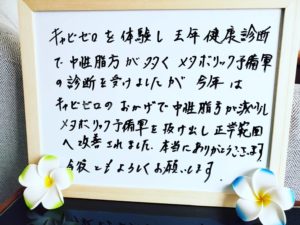 キャビゼロを体験し去年健康診断
で中性脂方が多く メタボリック予備軍
の診断を受けましたが 今年は
キャビゼロのおかげで中性脂肪が減少し
メタボリック予備軍を抜け出し 正常範囲
へ改善されました。本当にありがとうございます
今後ともよろしくお願いします。